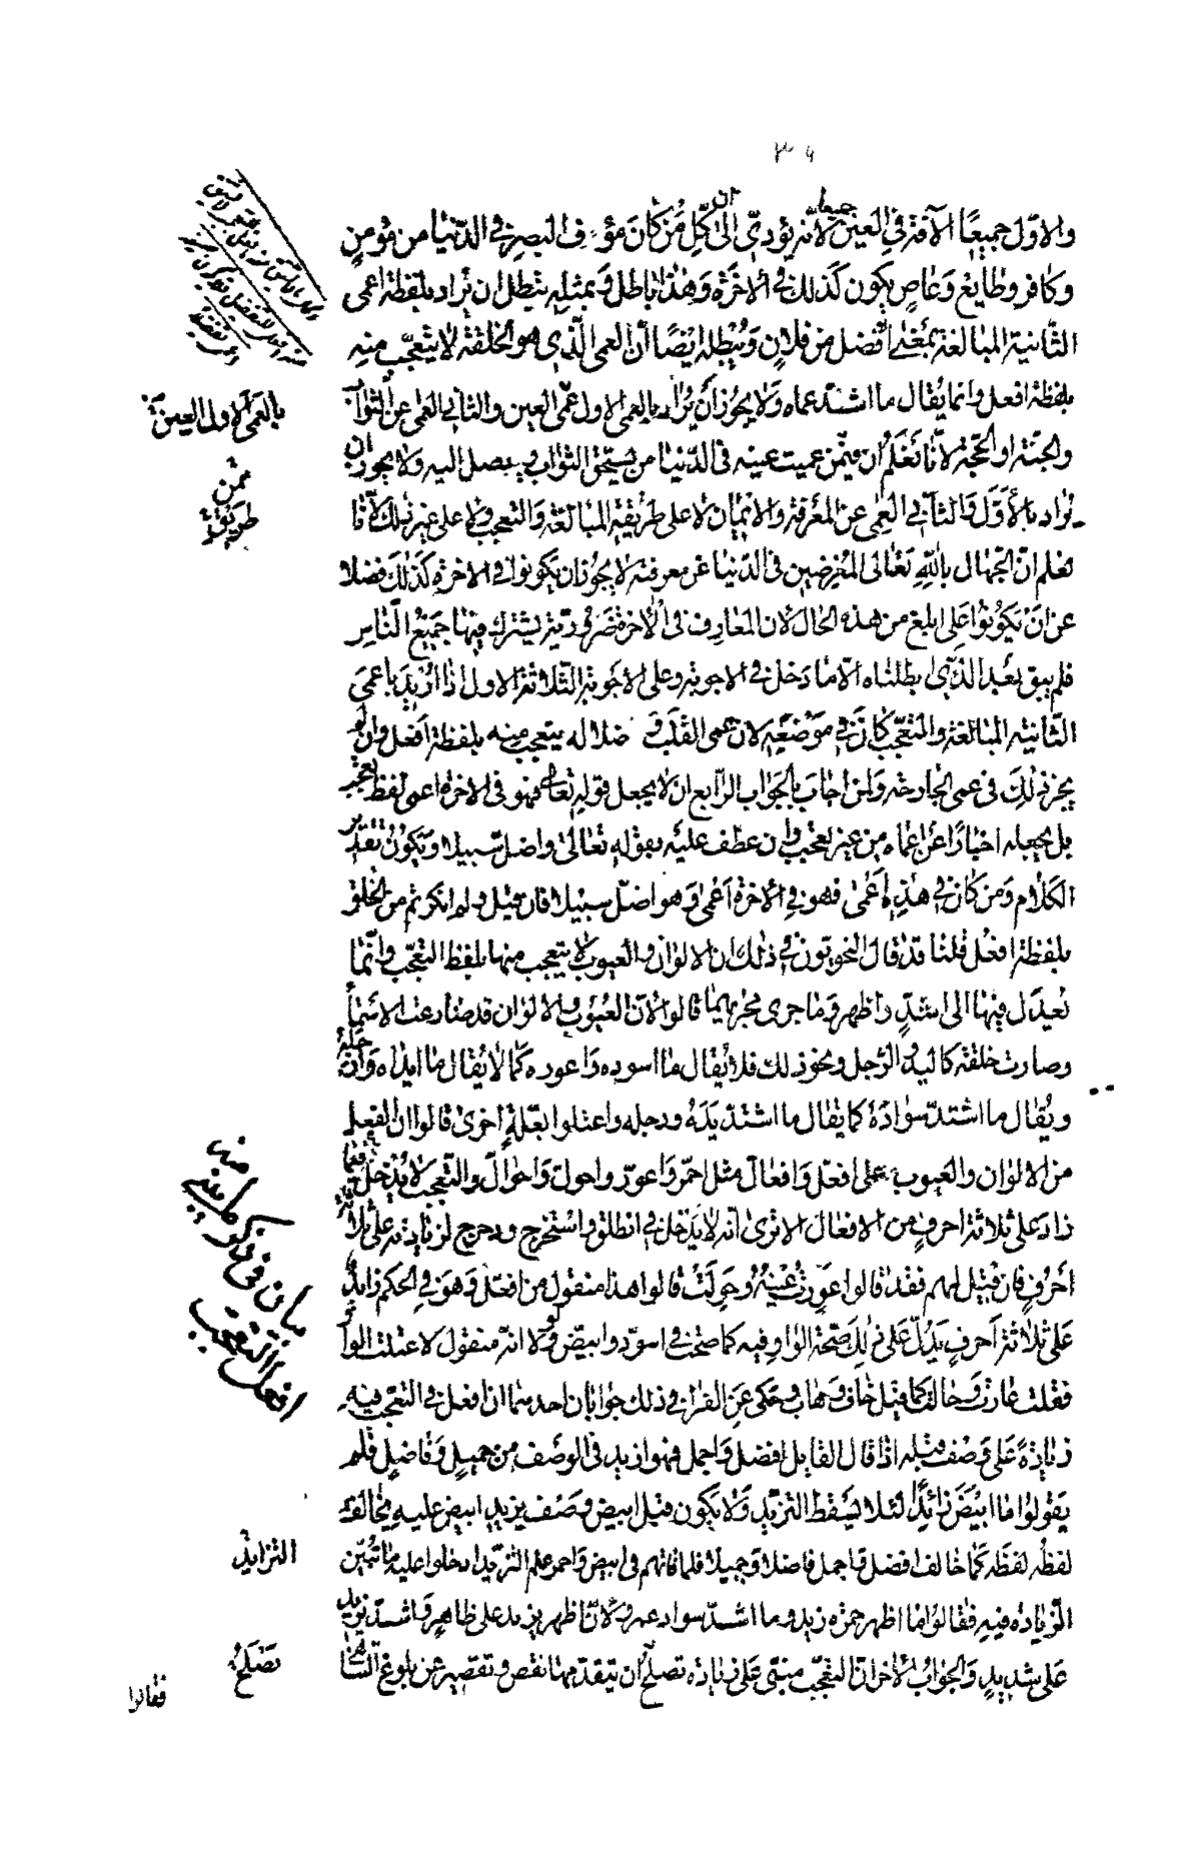 والاوّل جميعًا الآفة في العين جميعا لانّه يؤدّي الى ان كلّ من كان مؤف البصر في الدّنيا من مؤمن
وكافر وطايع وعاص يكون كذلك في الاخرة وهذا باطل وبمثله يبطل ان يراد بلفظة اعمى
الثّانية المبالغة بمعنى افضل من فلان ويبطله ايضًا انّ العمى الّذي هو الخلقة لا يتعجّب منه
بلفظة افعل وانما يُقال ما اشدّ عماه ولا يجوز أن يُراد بالعمى الاول عمى العين والثاني العمى عن الثواب
والجنّة او الحجّة لأنّا نعلم ان فيمن عميت عينه في الدّنيا من يستحق الثواب ويصل اليه ولا يجوز ان
يُراد بالأوّل والثّاني العمى عن المعرفة والايمان لا على طريقة المبالغة والتعجب ولا على غير ذلك لأنّا
نعلم انّ الجهال بالله تعالى المعرضين في الدّنيا عن معرفته لا يجوز ان يكونوا في الاخرة كذلك فضلا
عن ان يكونوا على ابلغ من هذه الحال لأن المعارف في الاخرة ضروريّة يشترك فيها جميع النّاس
فلم يبق بعد الّذي ابطلناه الّا ما دخل في الاجوبة وعلى الاجوبة الثّلاثة الاول اذا اريد باعمى
الثّانية المبالغة والتعجّب كان في موضعه لان عمى القلب و ضلاله يتعجب منه بلفظة افعل وان لم
يجز ذلك في عمى الجارحة ولمن اجاب بالجواب الرّابع ان لا يجعل قوله تعالى فهو في الاخرة اعمى لفظ تعجّب
بل يجعله اخبارًا عن عماه من غير تعجّب وان عطف عليه بقوله تعالى واضل سبيلا ويكون تقدير
الكلام ومن كان في هذه اعمى فهو في الاخرة اعمى وهو اضلّ سبيلا فان قيل ولم انكرتم من الخلق
بلفظة افعل قلنا قد قال النحويّون في ذلك ان الالوان والعيوب لا يتعجب منها بلفظ التعجّب وانّما
يعدل فيها الى اشدّ واظهر وما جرى مجريهما قالوا لأن العيوب والالوان قد ضارعت الاسماء
وصارت خلقة كاليد والرّجل ونحو ذلك فلا يُقال ما اسوده واعوره كما لا يُقال ما ايداه وارجله
ويُقال ما اشدّ سواده كما يقال ما اشدّ يده ورجله واعتلوا بعلّة اخرى قالوا ان الفعل
من الالوان والعيوب على افعلّ وافعالّ مثل احمرّ واعورّ واحولّ واحوالّ والتعجب لا يدخل فيما
زاد على ثلاثة احرف من الافعال الا ترى انه لا يدخل في انطلق واستخرج ودحرج لزيادته على ثلاثة
احرف فان قيل لهم فقد قالوا عورت عينه وحولت قالوا هذا منقول من افعلّ وهو في الحكم زائد
على ثلاثة احرف يدلّ على ذلك صحّة الواو فيه كما صحّت في اسودّ وابيضّ ولولا انه منقول لاعتلت الواو
فقلت عارت وحالت كما قيل خاف وهاب وحكى عن الفراء في ذلك جوابان احدهما ان افعل في التعجّب فيه
زيادة على وصف قبله اذا قال القايل افضل واجمل فهو ازيد في الوصف من جميل وفاضل فلم
يقولوا ما ابيض زائدًا لئلا يسقط التزيّد ولا يكون قبل ابيض وصف يزيد ابيض عليه يخالف
لفظُه لفظَه كما خالف افضل واجمل فاضلا وجميلا فلما فاتهم في ابيض واحمر علم التزيّد ادخلوا عليه ما تبيّن
الزّيادة فيه فقالوا ما اظهر حمرة زيد وما اشدّ سواد عمرو لأنّ اظهر يزيد على ظاهر واشدّ تزيد
على شديد والجواب الاخر ان التعجّب مبني على زيادة تصلح ان يتقدّمها نقص وتقصير عن بلوغ التّناهي
بالعمى الاول العين
فمن
طريقة
بيان في ذكر ما يبنى منه
افعل التعجب
التزايد
تصلح
فقالوا